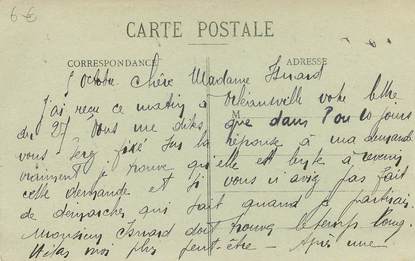 6 €
CARTE POSTALE
CORRESPONDANCE ADRESSE
7 octobre chère Madame Isnard
j'ai reçu ce matin à votre lettre
du 27 Vous me dites que dans 8 ou 10 jours
vous serez fixé sur la réponse à ma demande
vraiment je trouve qu'elle est à
cette demande et si vous n'avez pas fait
de démarches qui fait quand je partirai
Monsieur Isnard doit trouver le temps long
moi plus peut-être – Après une